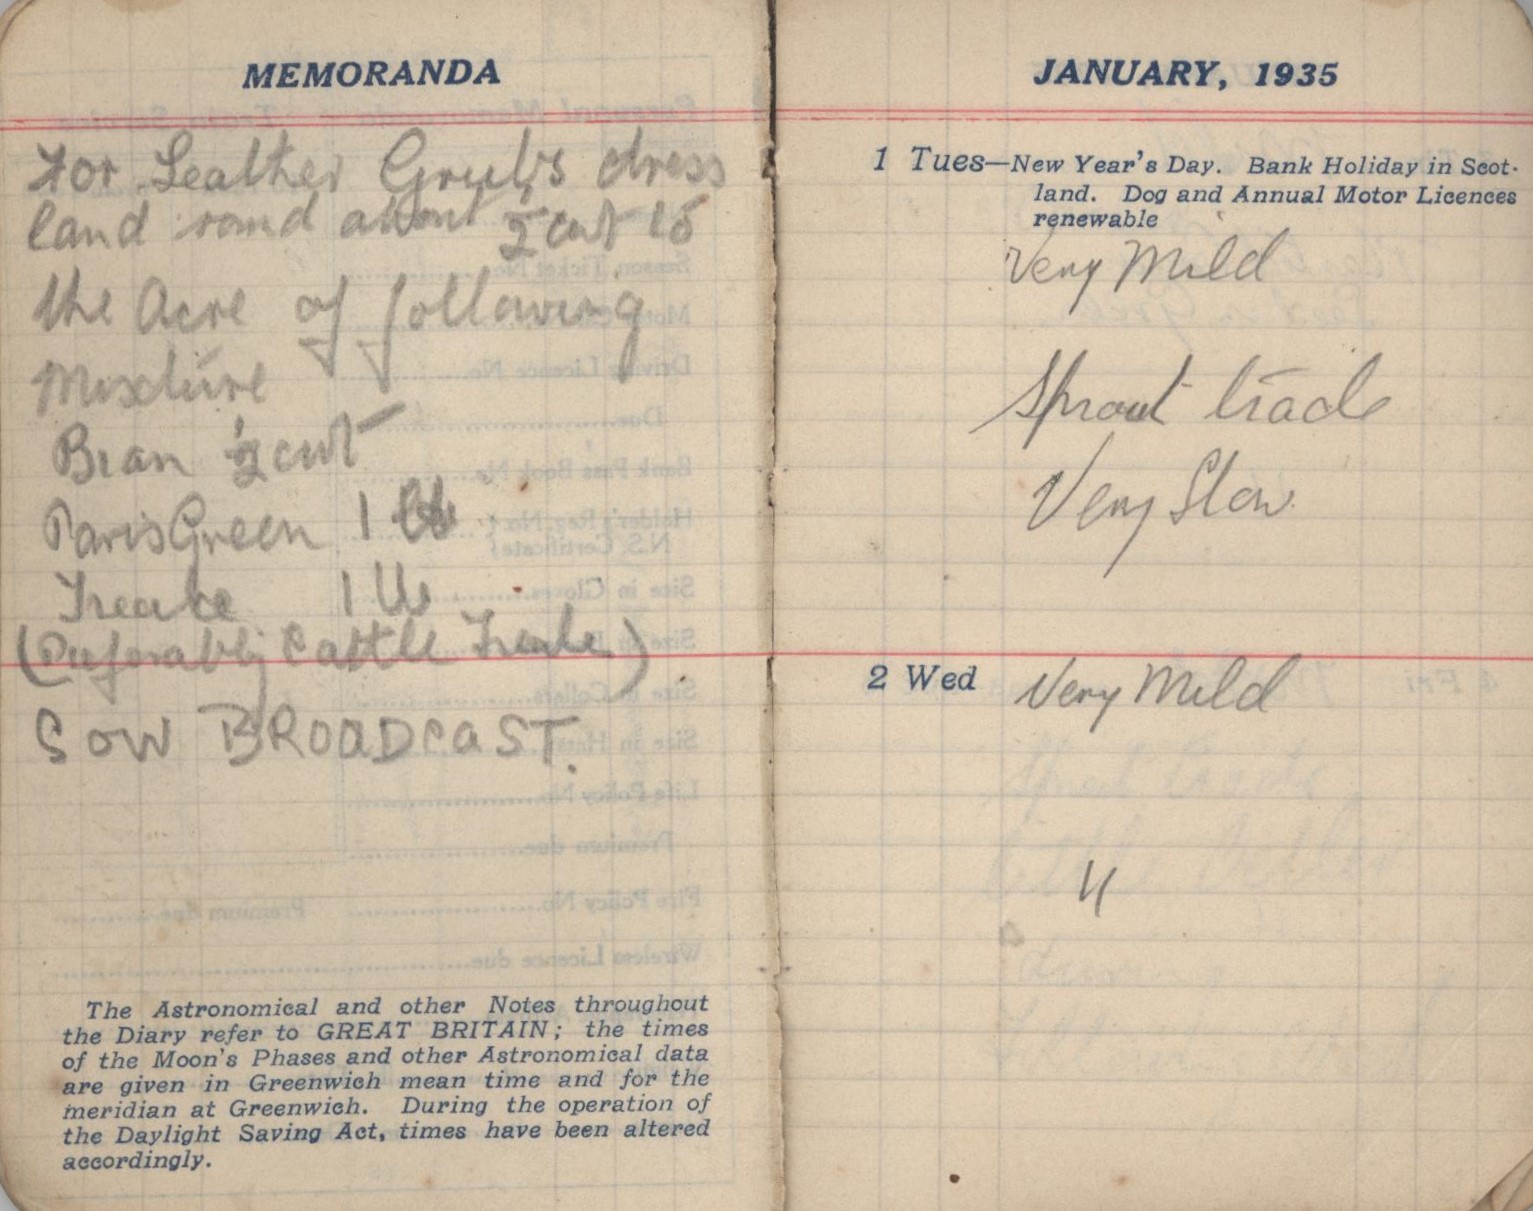 MEMORANDA
For Leather Grubs dress
land round about ½ cwt to
the Acre of following
Mixture
Bran ½ cwt
Paris Green 1 lb
Treacle 1 lb
(Preferably Cattle Treacle)
SOW BROADCAST.
The Astronomical and other Notes throughout
the Diary refer to GREAT BRITAIN; the times
of the Moon's Phases and other Astronomical data
are given in Greenwich mean time and for the
meridian at Greenwich. During the operation of
the Daylight Saving Act, times have been altered
accordingly.
JANUARY, 1935
1 Tues—New Year's Day. Bank Holiday in Scot-
land. Dog and Annual Motor Licences
renewable
Very Mild
Sprout trade
Very Slow
2 Wed Very Mild
"